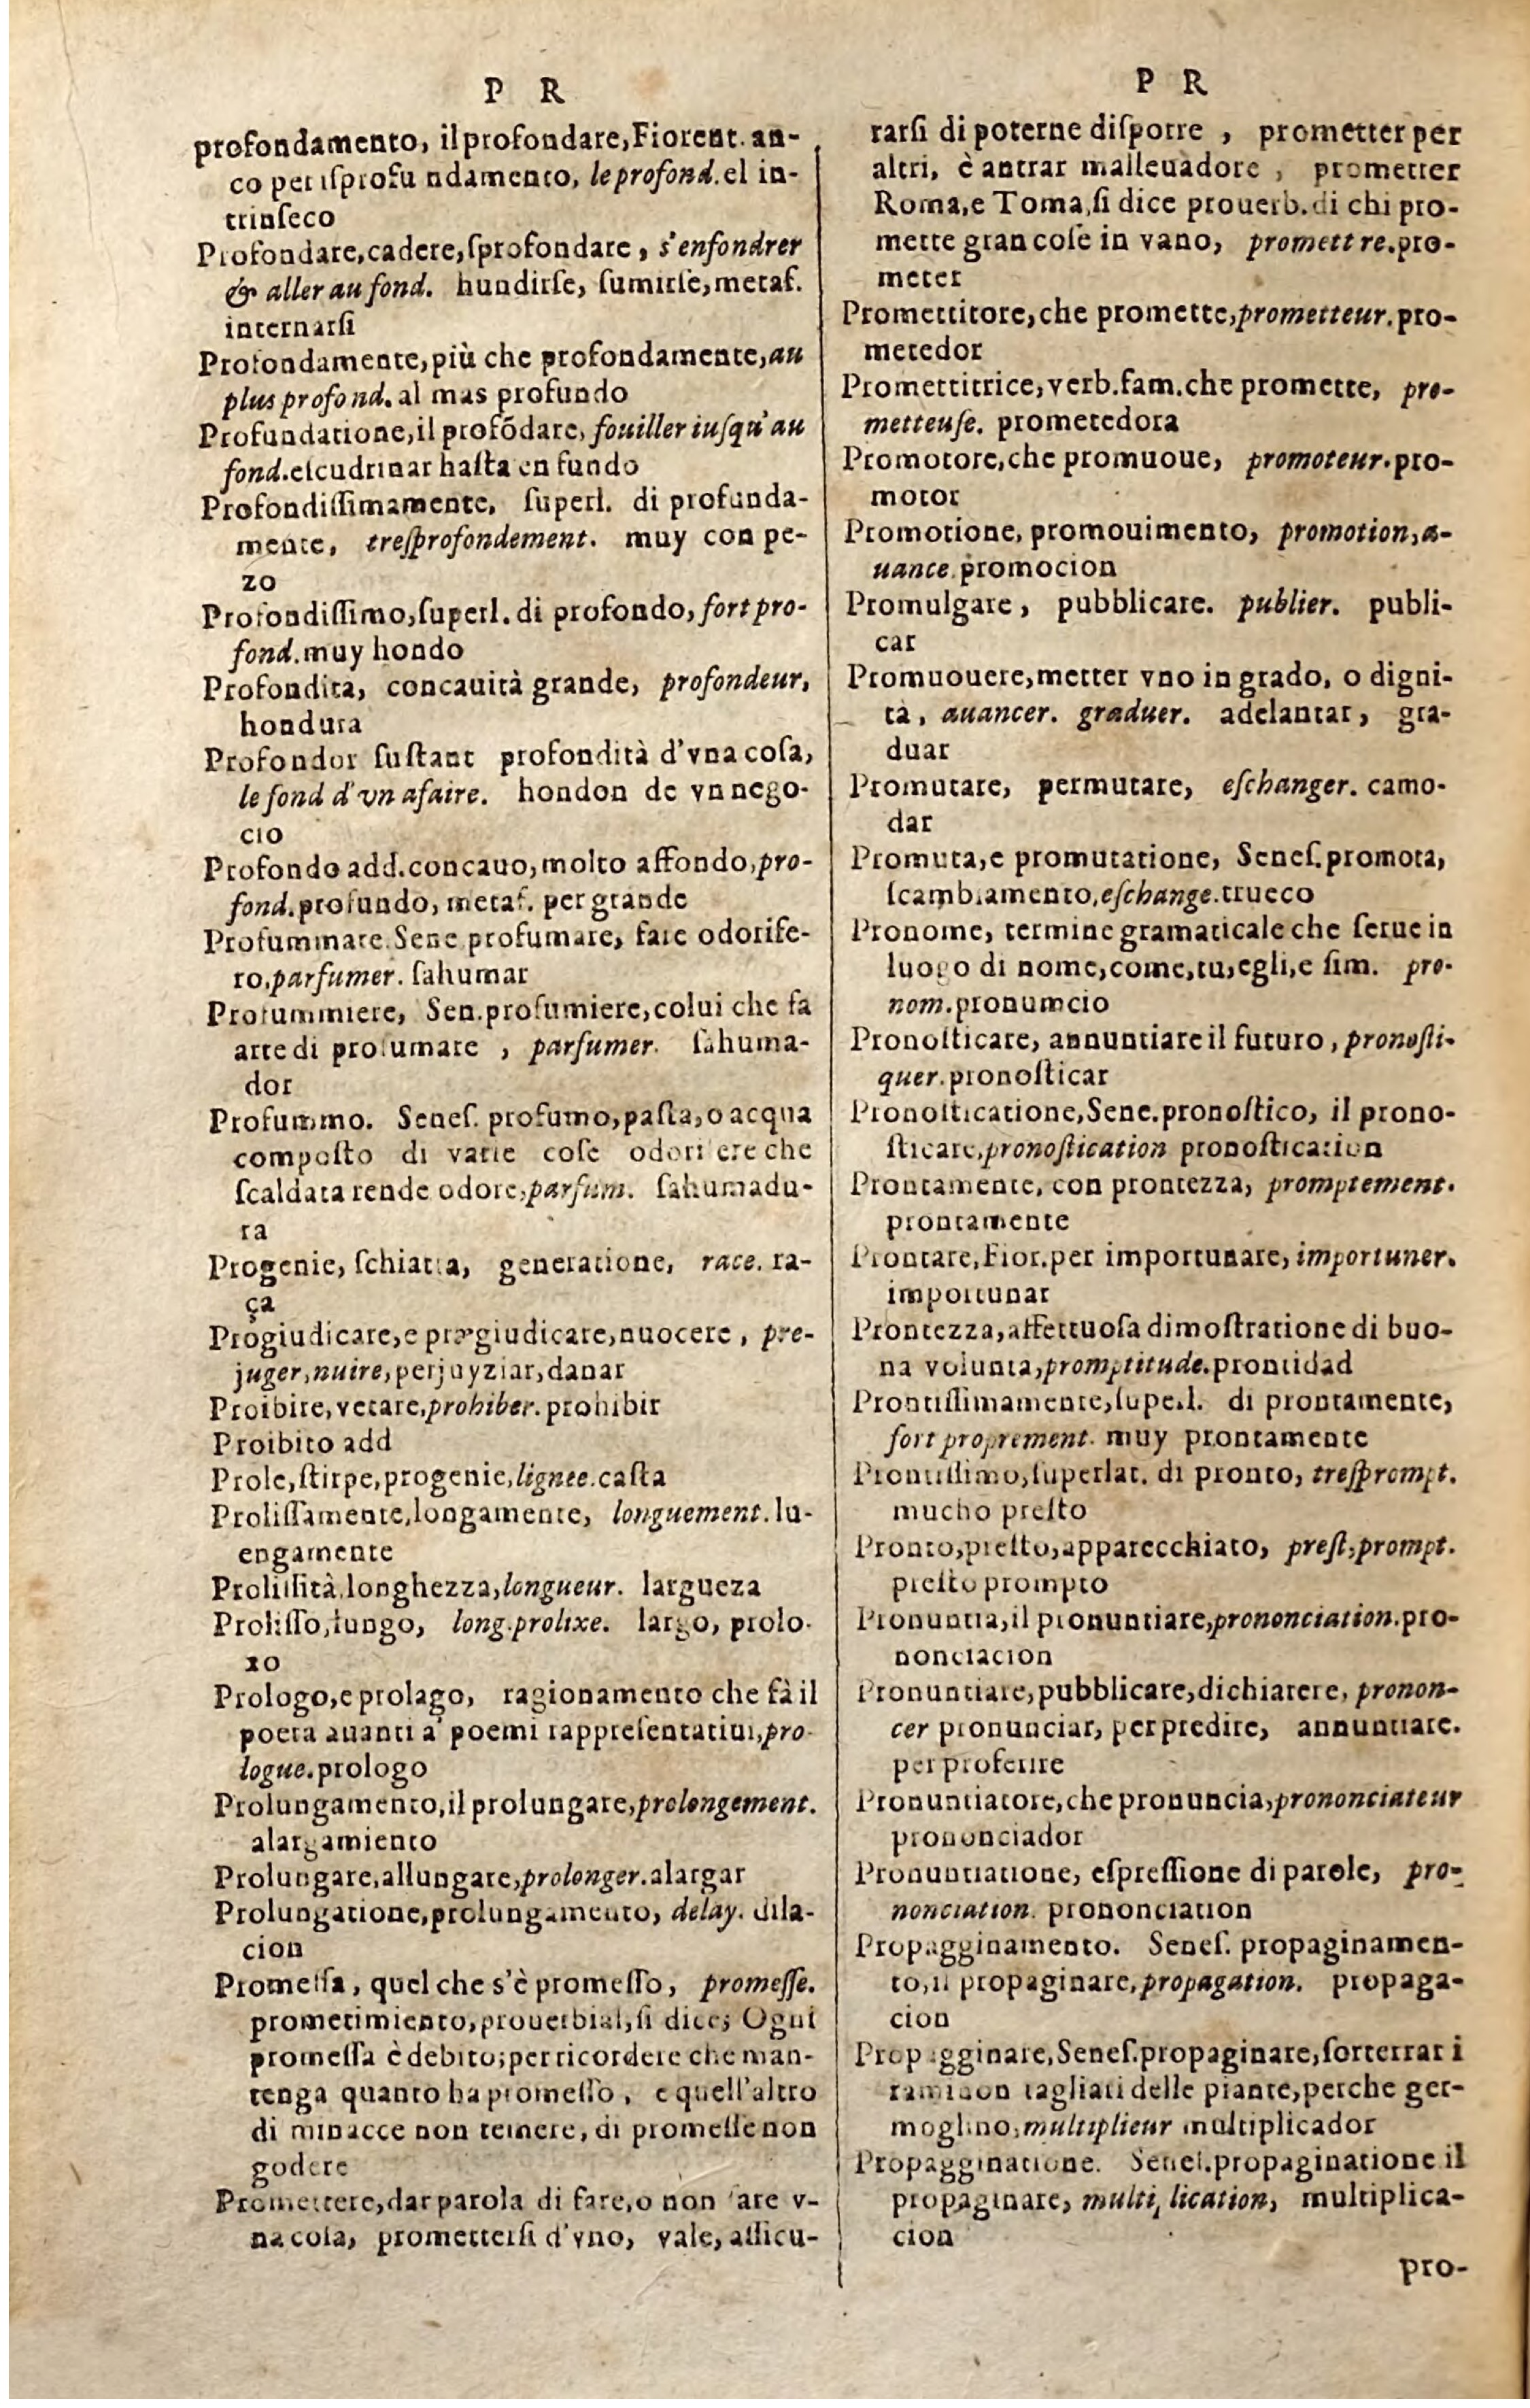 P R
profondamento, il profondare, Fiorent. an-
co per isprofu ndamento, le profond. el in-
trinſeco
Profondare, cadere, ſprofondare, s'enfondrer
& aller au fond. hundirſe, ſumirſe, metaf.
internarſi
Profondamente, più che profondamente, au
plus profond. al mas profundo
Profundatione, il profõdare, fouiller iuſqu'au
fond. eſcudrinar haſta en fundo
Profondiſſimamente, ſuperl. di profunda-
mente, treſprofondement. muy con pe-
zo
Profondiſſimo, ſuperl. di profondo, fort pro-
fond. muy hondo
Profondita, concauità grande, profondeur,
hondura
Profondor ſuſtant profondità d'vna coſa,
le fond d'vn afaire. hondon de vn nego-
cio
Profondo add. concauo, molto affondo, pro-
fond. profundo, metaf. per grande
Profummare. Sene profumare, fare odorife-
ro, parfumer. ſahumar
Profummiere, Sen. profumiere, colui che fa
arte di profumare, parfumer. ſahuma-
dor
Profummo. Seneſ. profumo, paſta, o acqua
compoſto di varie coſe odorifere che
ſcaldata rende odore, parfum. ſahumadu-
ra
Progenie, ſchiatta, generatione, race. ra-
ça
Progiudicare, e prægiudicare, nuocere, pre-
juger, nuire, perjuyziar, danar
Proibire, vetare, prohiber. prohibir
Proibito add
Prole, ſtirpe, progenie, lignee. caſta
Proliſſamente, longamente, longuement. lu-
engamente
Proliſſità, longhezza, longueur. largueza
Proliſſo, lungo, long. prolixe. largo, prolo-
xo
Prologo, e prolago, ragionamento che fà il
poeta auanti a' poemi rappreſentatiui, pro-
logue. prologo
Prolungamento, il prolungare, prolongement.
alargamiento
Prolungare, allungare, prolonger. alargar
Prolungatione, prolungamento, delay. dila-
cion
Promeſſa, quel che s'è promeſſo, promeſſe.
prometimiento, prouerbial, ſi dice; Ogni
promeſſa è debito; per ricordere che man-
tenga quanto ha promeſſo, e quell'altro
di minacce non temere, di promeſſe non
godere
Promettere, dar parola di fare, o non fare v-
na coſa, prometterſi d'vno, vale, aſſicu-
P R
rarſi di poterne diſporre, prometter per
altri, è antrar malleuadore, prometter
Roma, e Toma, ſi dice prouerb. di chi pro-
mette gran coſe in vano, promettre. pro-
meter
Promettitore, che promette, prometteur. pro-
metedor
Promettitrice, verb. fam. che promette, pro-
metteuſe. prometedora
Promotore, che promuoue, promoteur. pro-
motor
Promotione, promouimento, promotion, a-
uance. promocion
Promulgare, pubblicare. publier. publi-
car
Promuouere, metter vno in grado, o digni-
tà, auancer. graduer. adelantar, gra-
duar
Promutare, permutare, eſchanger. camo-
dar
Promuta, e promutatione, Seneſ. promota,
ſcambiamento, eſchange. trueco
Pronome, termine gramaticale che ſerue in
luogo di nome, come, tu, egli, e ſim. pro-
nom. pronumcio
Pronoſticare, annuntiare il futuro, pronoſti-
quer. pronoſticar
Pronoſticatione, Sene. pronoſtico, il prono-
ſticare, pronoſtication pronoſtication
Prontamente, con prontezza, promptement.
prontamente
Prontare, Fior. per importunare, importuner.
importunar
Prontezza, affettuoſa dimoſtratione di buo-
na volunta, promptitude. prontidad
Prontiſſimamente, ſuperl. di prontamente,
fort proprement. muy prontamente
Prontiſſimo, ſuperlat. di pronto, treſprompt.
mucho preſto
Pronto, preſto, apparecchiato, preſt, prompt.
preſto prompto
Pronuntia, il pronuntiare, prononciation. pro-
nonciacion
Pronuntiare, pubblicare, dichiarere, pronon-
cer pronunciar, per predire, annuntiare.
per proferire
Pronuntiatore, che pronuncia, prononciateur
prononciador
Pronuntiatione, eſpreſſione di parole, pro-
nonciation. prononciation
Propagginamento. Seneſ. propaginamen-
to, il propaginare, propagation. propaga-
cion
Propagginare, Seneſ. propaginare, ſotterrar i
rami non tagliati delle piante, perche ger-
moglino, multiplieur multiplicador
Propagginatione. Seneſ. propaginatione il
propaginare, multiplication, multiplica-
cion
pro-